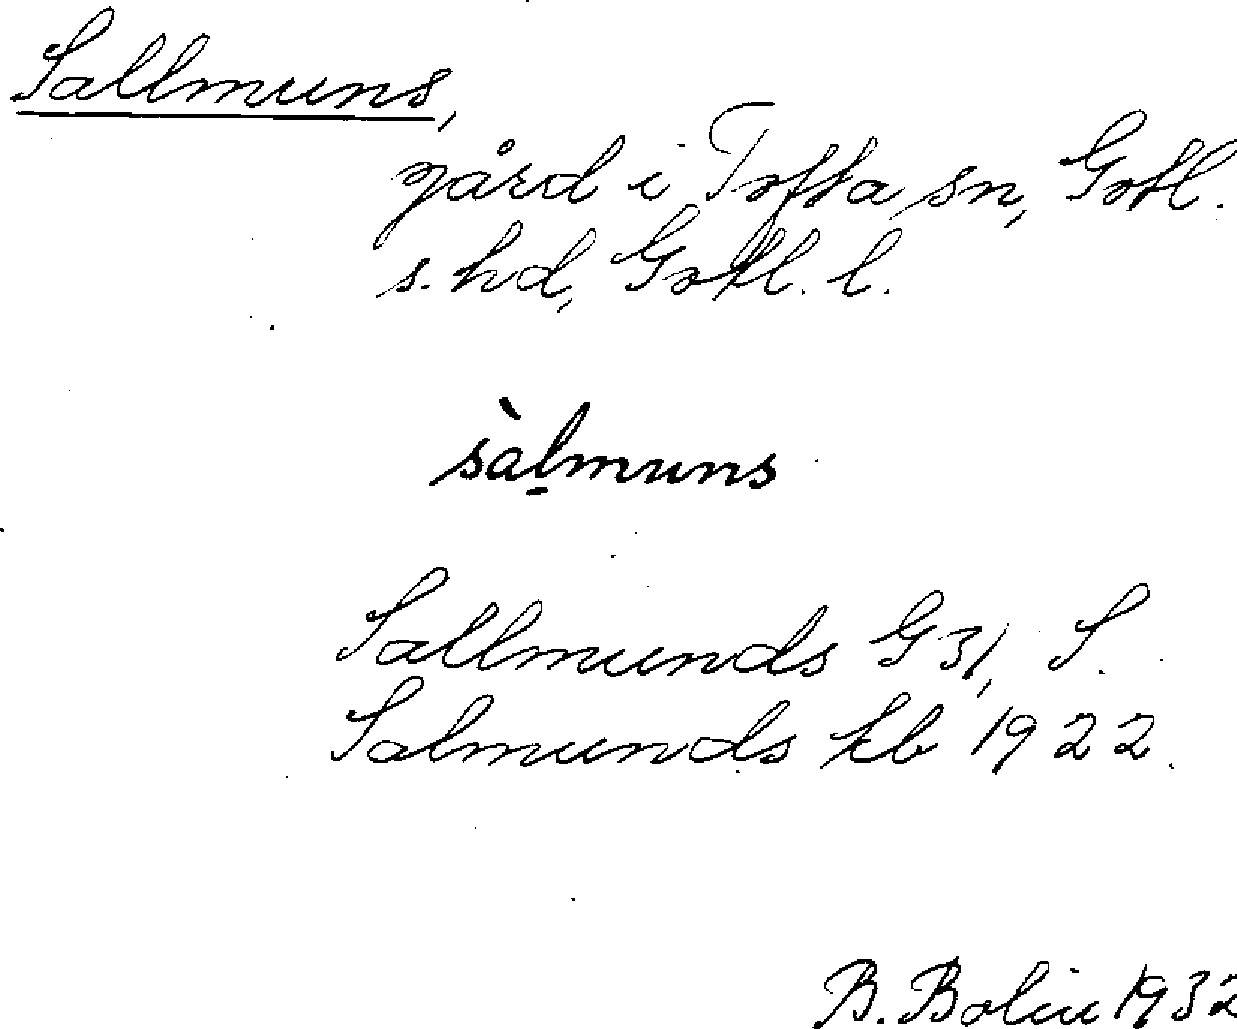 Sallmuns,
gård i Tofta sn, Gotl.
s. hd, Gotl. l.
sàl̠muns
Sallmunds G 31, S.
Salmunds kb 1922.
B. Bolin 1932